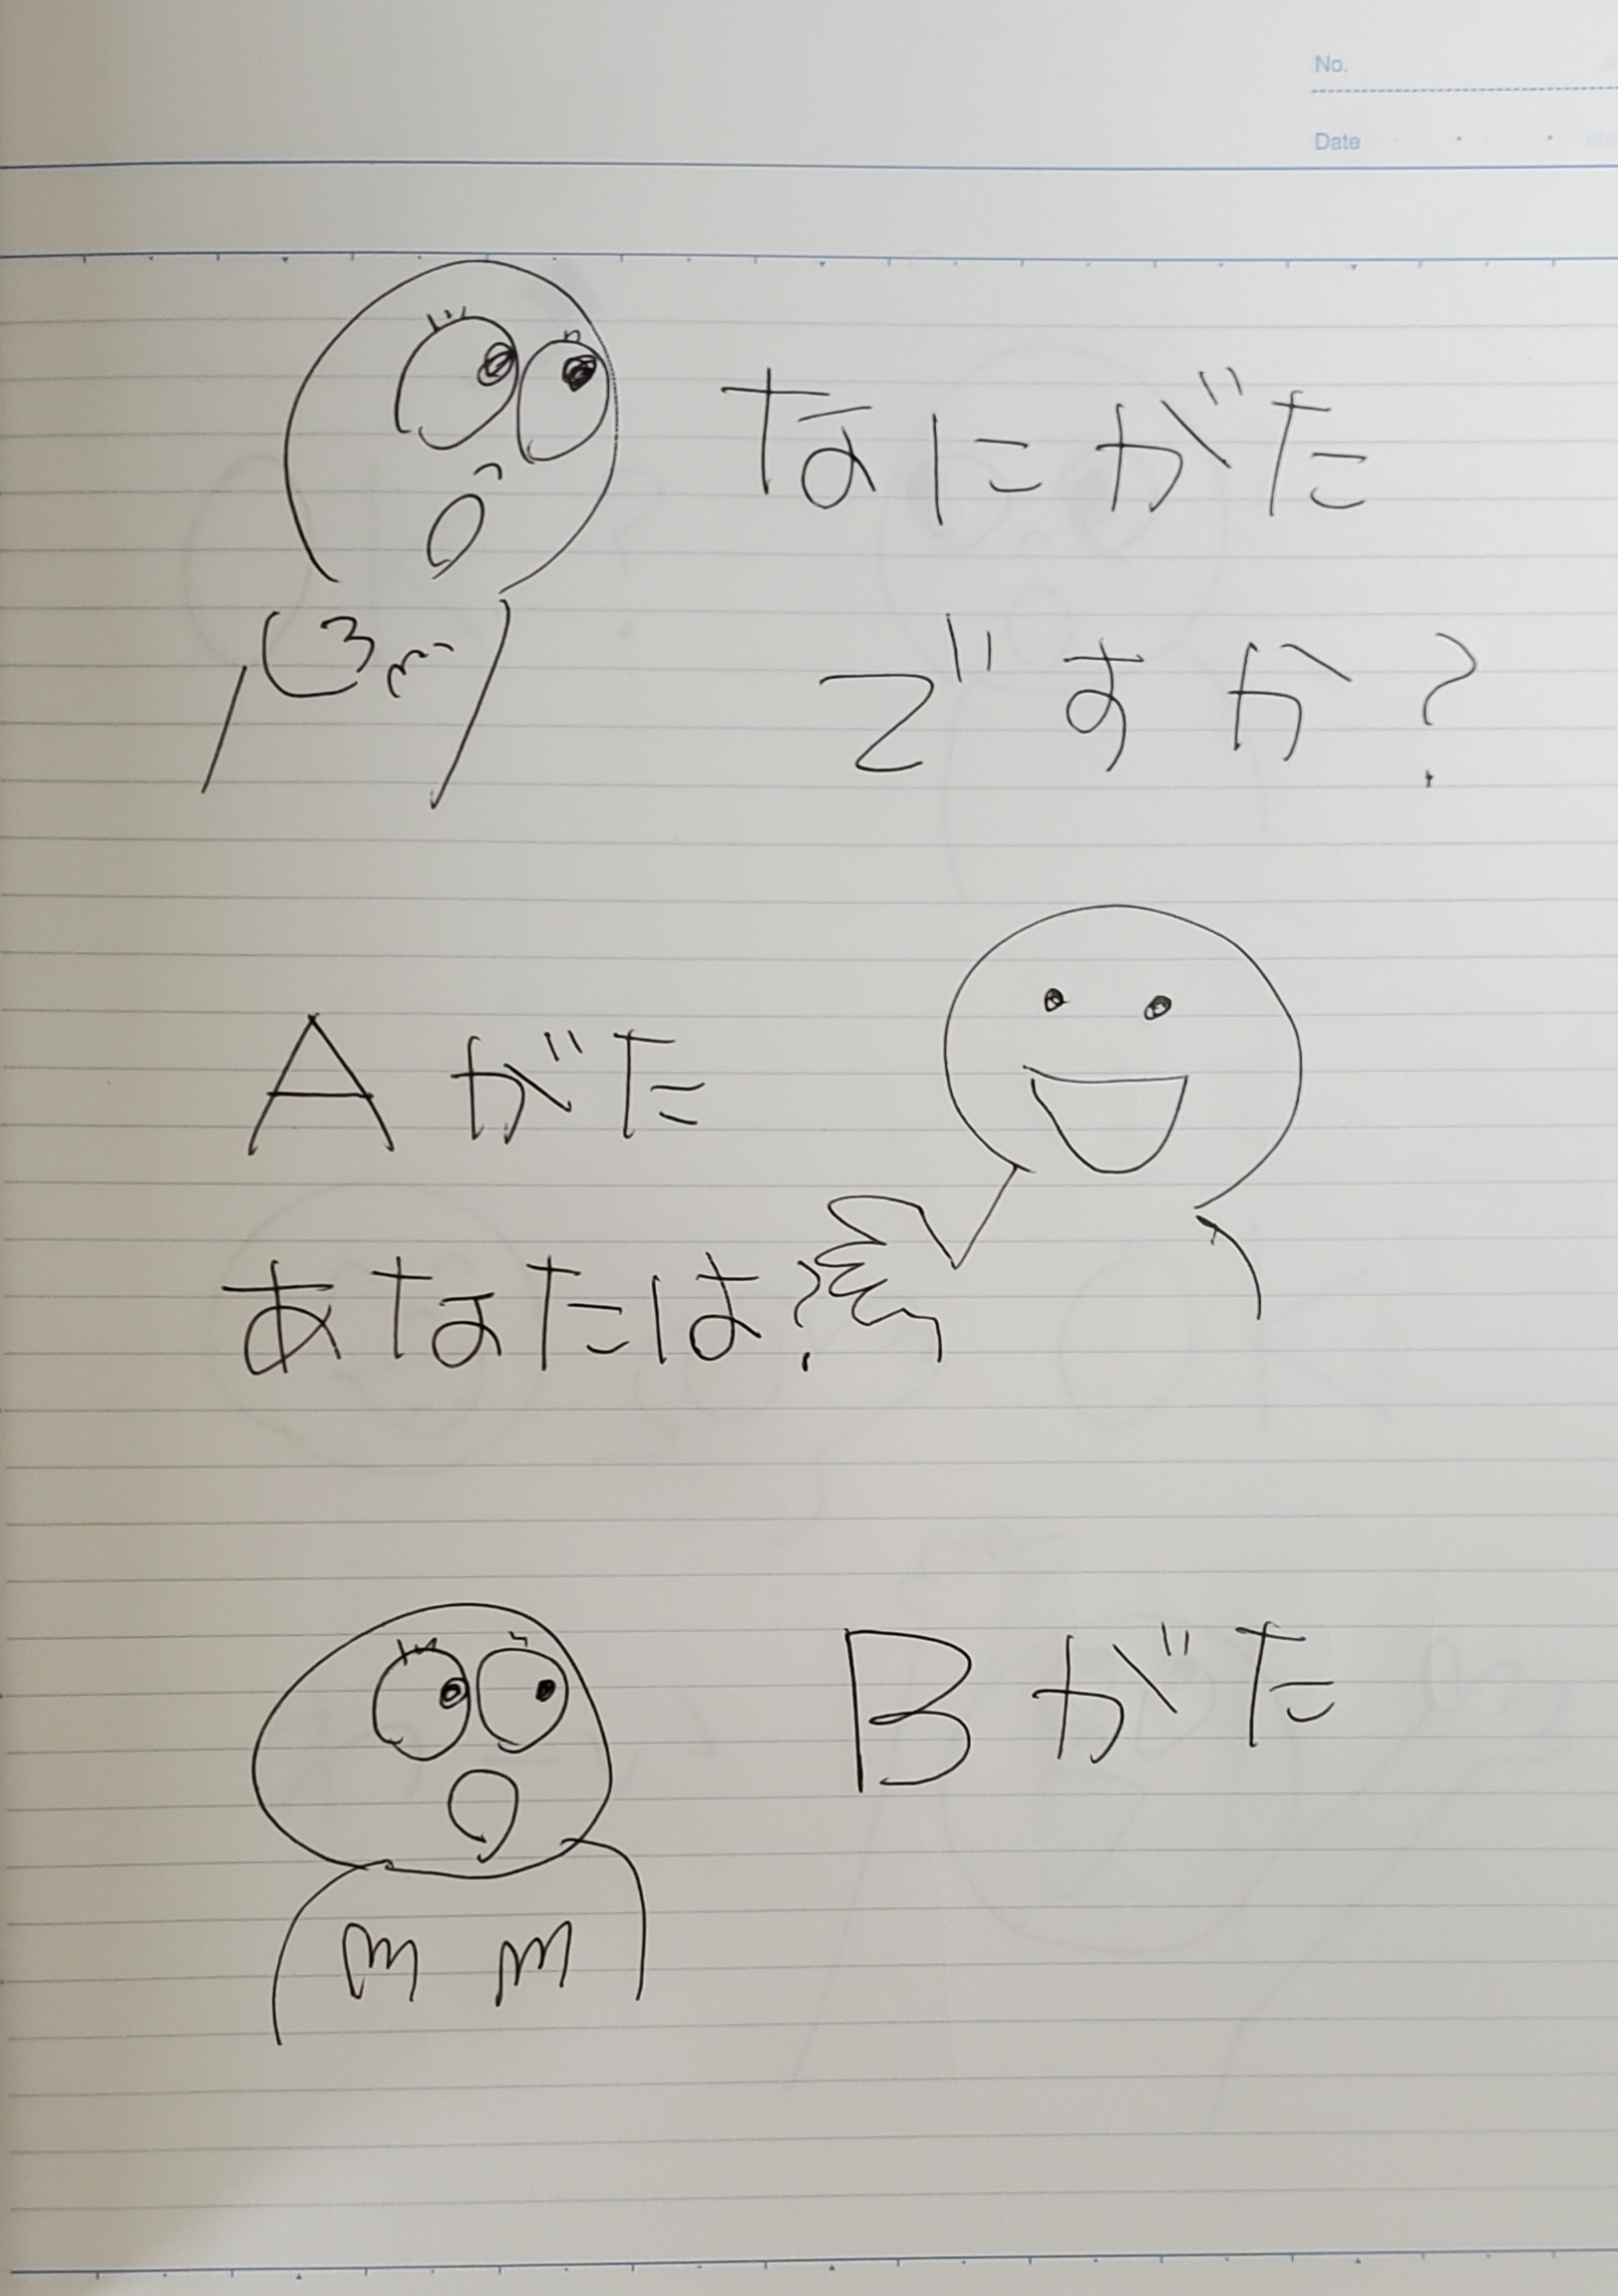 No.
Date
なにがた
ですか?
Aがた
あなたは?
Bがた